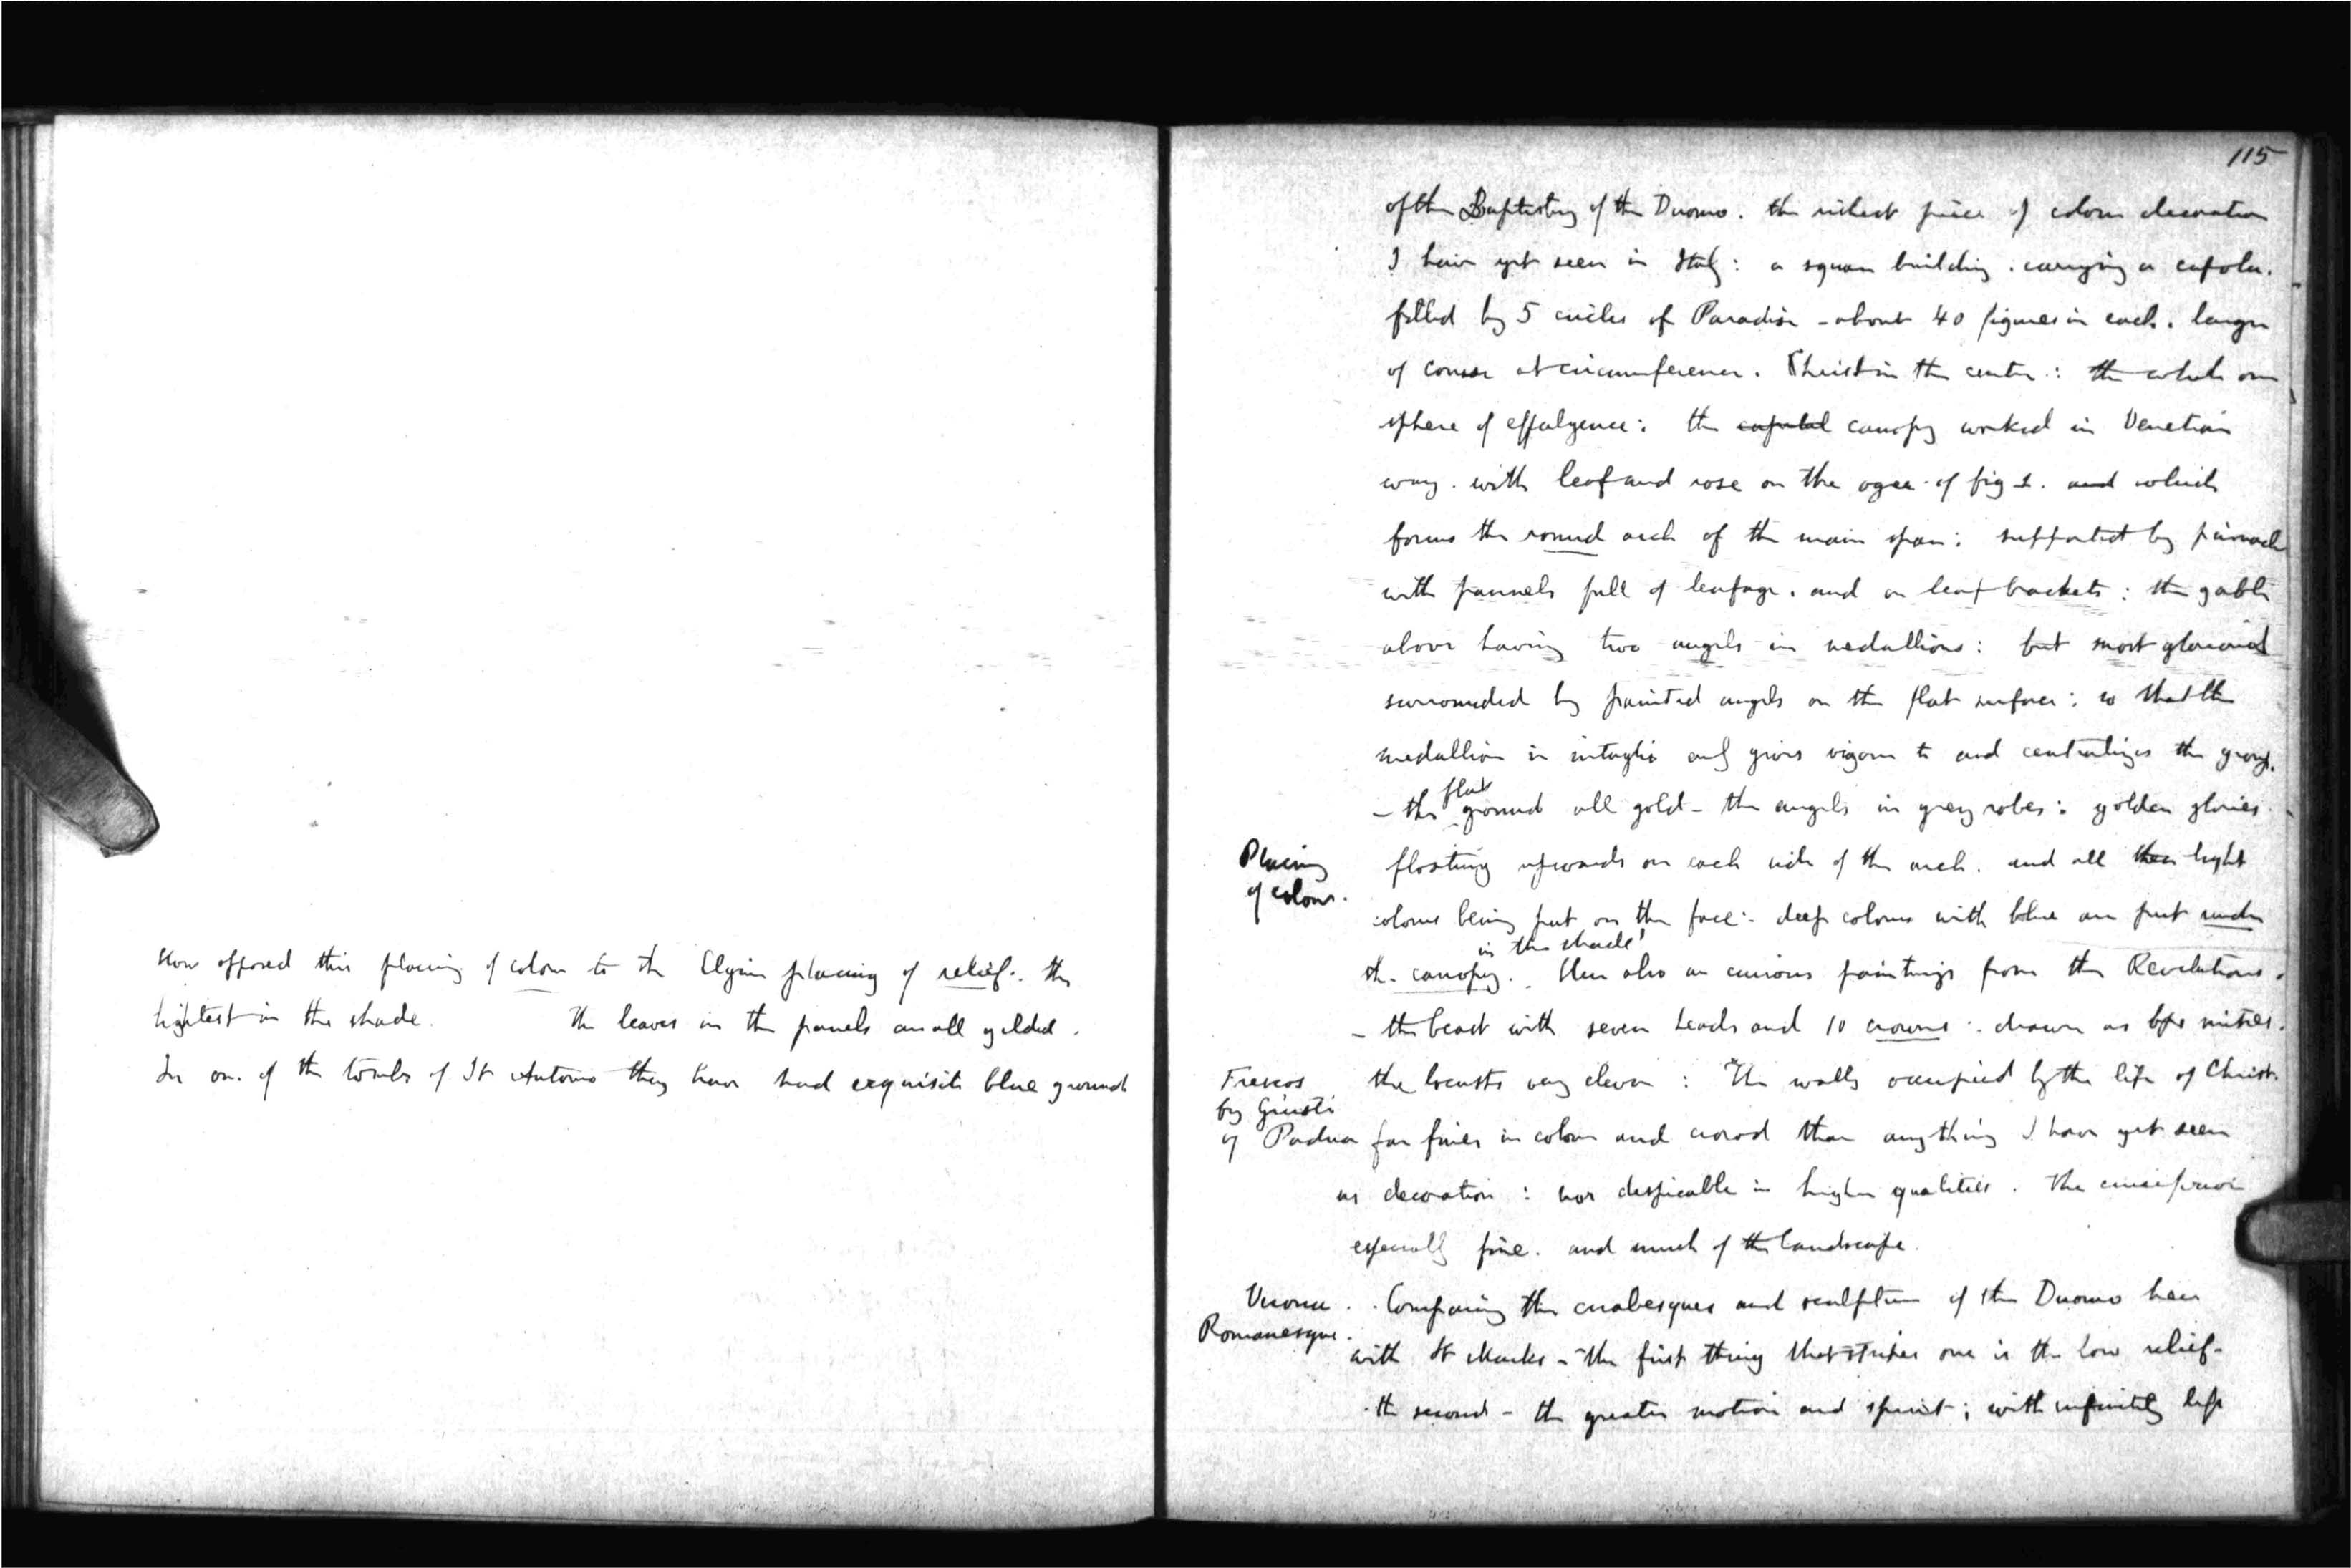 How opposed this placing of colour to the Elgin placing of relief: the
lightest in the shade. The leaves in the panels are all gilded.
In one of the tombs of St Antonio they have had exquisite blue ground
115
of the Baptistery of the Duomo. the richest piece of colour decoration
I have yet seen in Italy: a square building. carrying a cupola.
filled by 5 circles of Paradise - about 40 figures in each. larger
of course at circumference. Christ in the centre: the whole one
sphere of effulgence: the capital canopy worked in Venetian
way. with leaf and rose on the ogee of fig 1. and which
forms the round arch of the main span: supported by pinnacle
with pannels full of leafage. and on leaf brackets: the gable
above having two angels in medallions: but most glorious
surrounded by painted angels on the flat surface: so that the
medallion in intaglio only gives vigour to and centralizes the group.
- the flat ground all gold - the angels in grey robes: golden glories
Placing
of colour.
floating upwards on each side of the arch. and all the light
colours being put on the face:- deep colours with blue are put under
in the shade'
the canopy. Here also are curious paintings from the Revelations.
- the beast with seven heads and 10 crowns: drawn as bps mitres.
Frescos
by Giusti
of Padua
the locusts very clever: The walls occupied by the life of Christ.
far finer in colour and crowd than anything I have yet seen
as decoration: nor despicable in higher qualities. The crucifixion
especially fine. and much of the landscape.
Verona.
Romanesque.
Comparing the arabesques and sculpture of the Duomo here
with St Marks - The first thing that strikes one is the low relief -
the second - the greater motion and spirit; with infinitely less